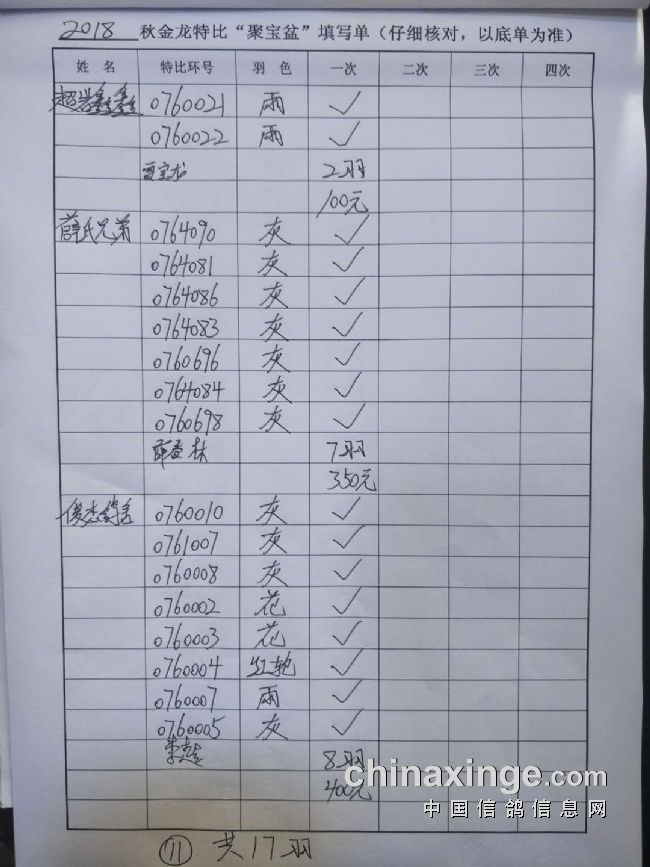 2018 秋金龙特比“聚宝盆”填写单（仔细核对，以底单为准）
姓 名 特比环号 羽 色 一次 二次 三次 四次
0760021 雨 ✓
0760022 雨 ✓
2羽
100元
薛氏兄弟 0764090 灰 ✓
0764081 灰 ✓
0764086 灰 ✓
0764083 灰 ✓
0760696 灰 ✓
0764084 灰 ✓
0760698 灰 ✓
7羽
350元
0760010 灰 ✓
0761007 灰 ✓
0760008 灰 ✓
0760002 花 ✓
0760003 花 ✓
0760004 红轮 ✓
0760007 雨 ✓
0760005 灰 ✓
8羽
400元
chinaxinge.com
中国信鸽信息网
11 共17羽